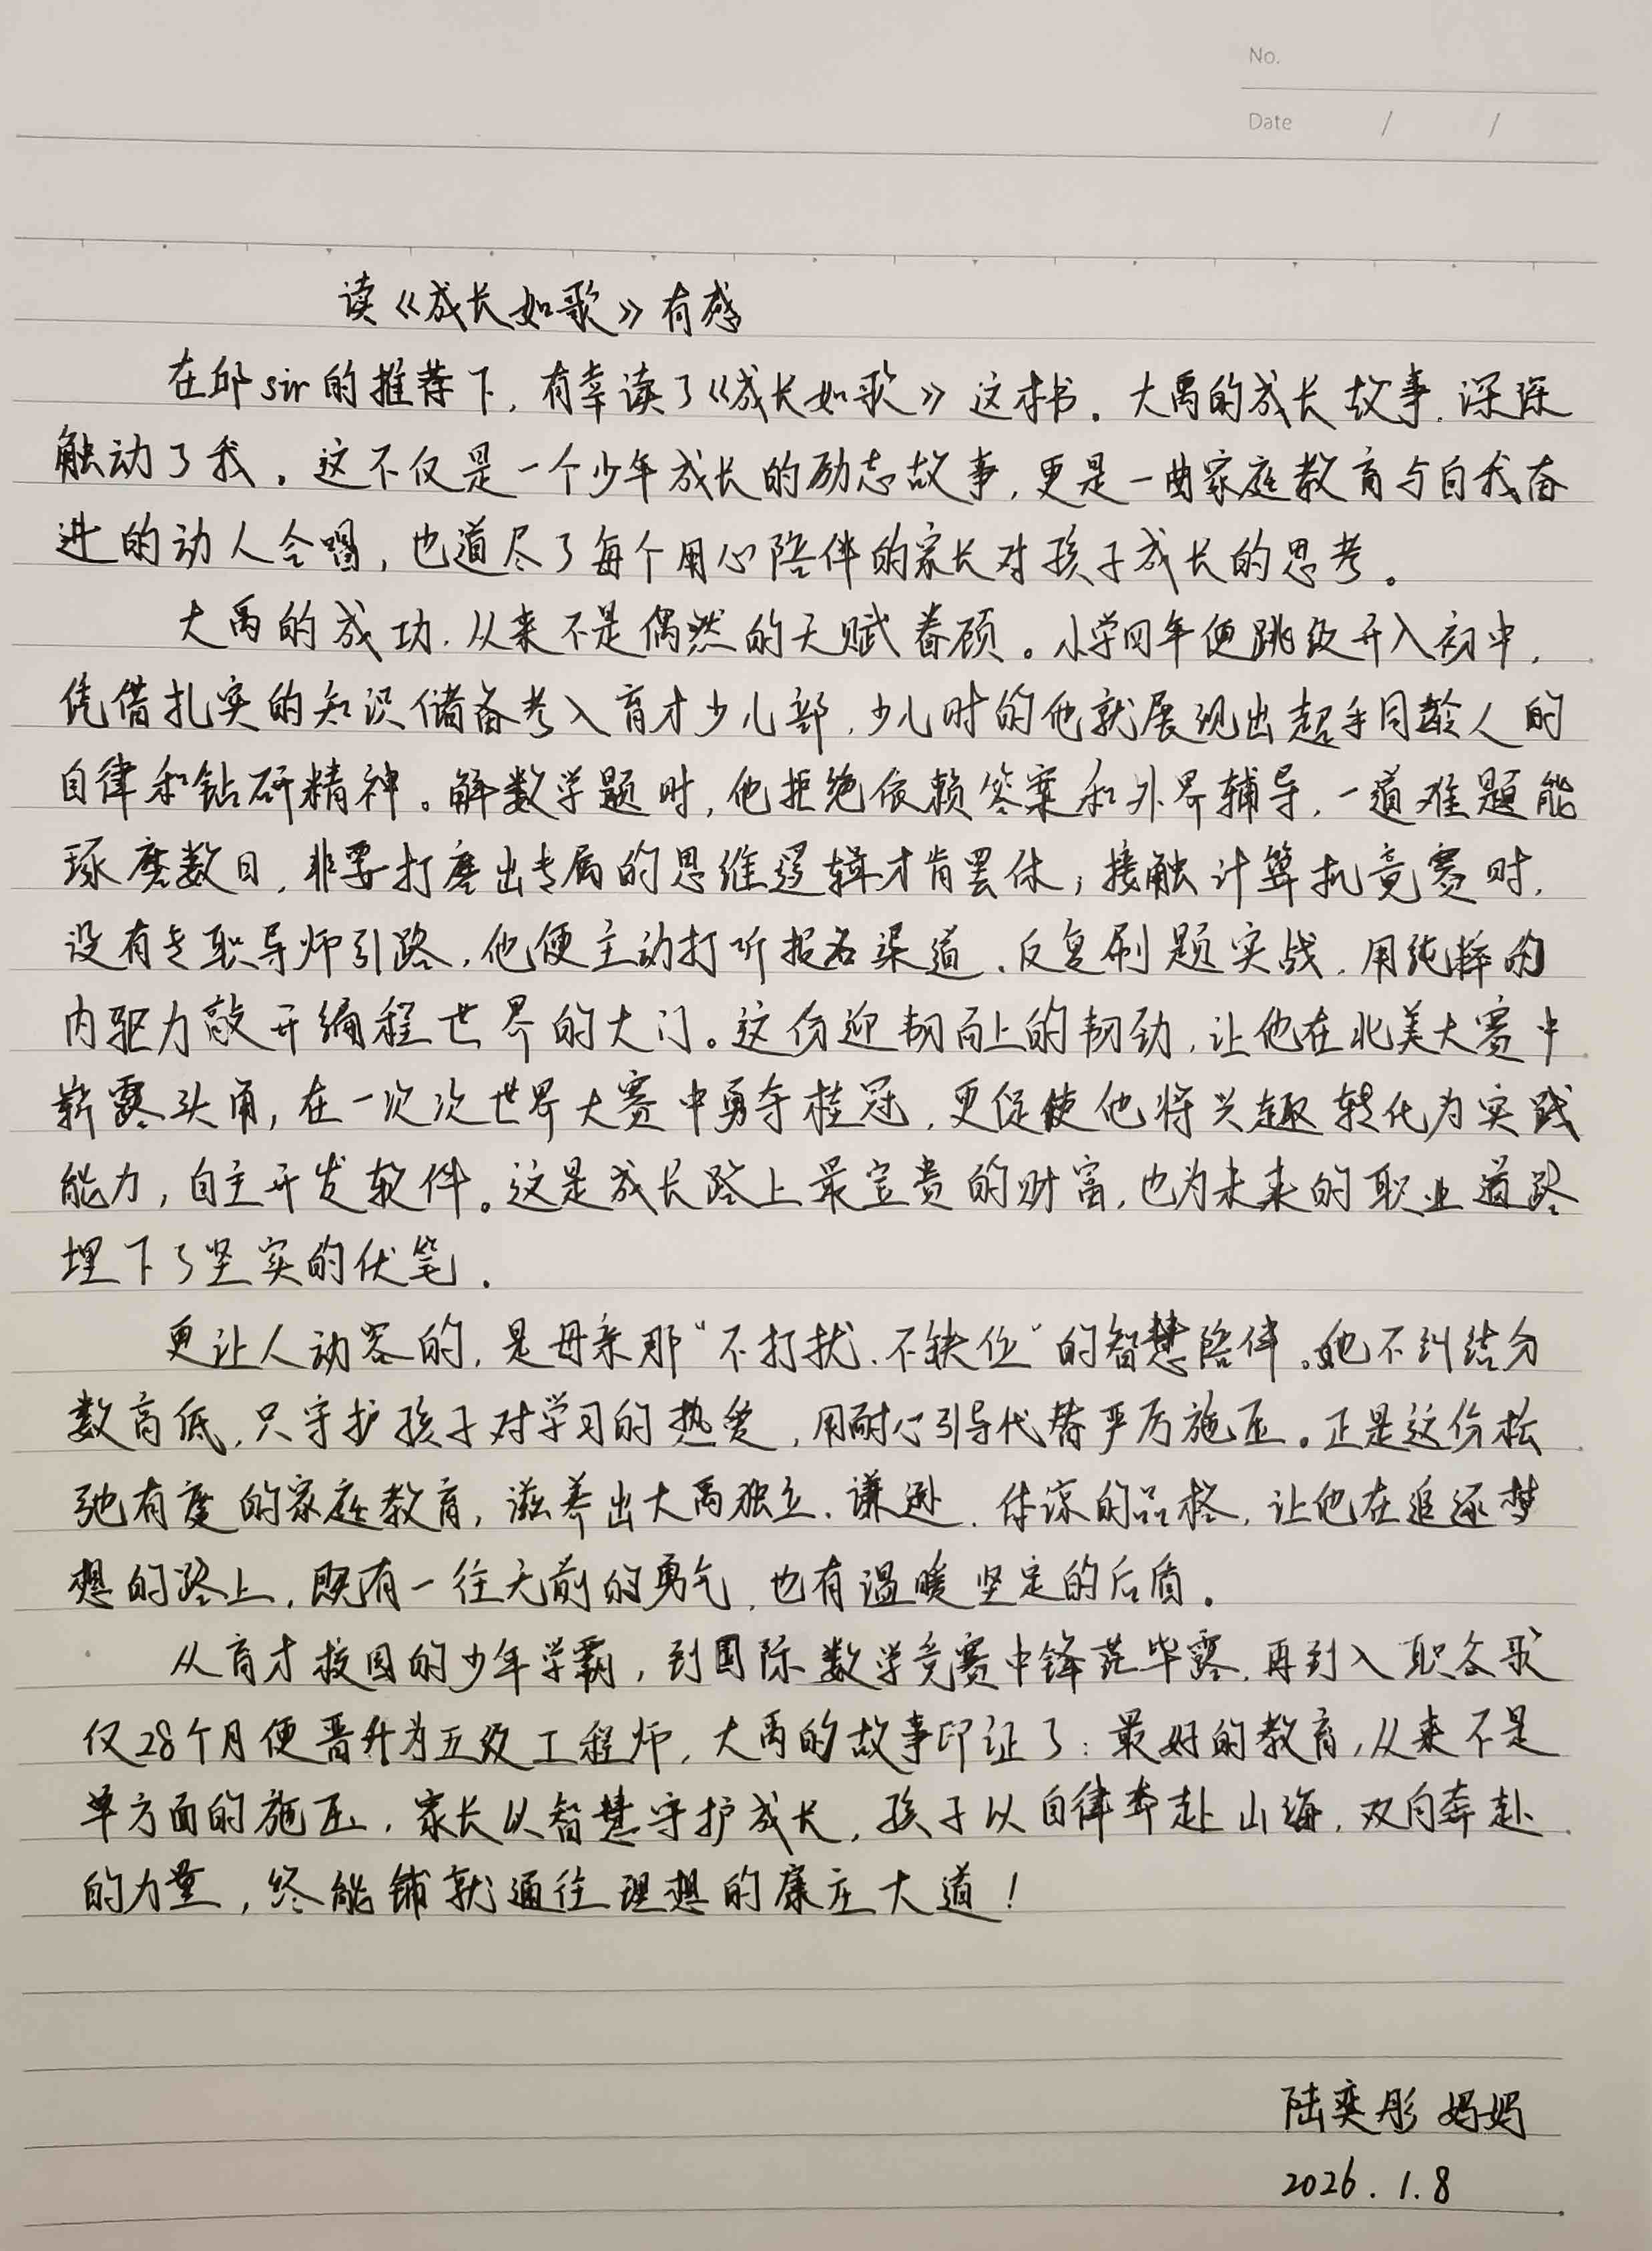 No.
Date / /
读《成长如歌》有感
在邱sir的推荐下，有幸读了《成长如歌》这本书。大禹的成长故事，深深
触动了我。这不仅是一个少年成长的励志故事，更是一曲家庭教育与自我奋
进的动人合唱，也道尽了每个用心陪伴的家长对孩子成长的思考。
大禹的成功，从来不是偶然的天赋眷顾。小学四年便跳级升入初中，
凭借扎实的知识储备考入育才少儿部，少儿时的他就展现出超乎同龄人的
自律和钻研精神。解数学题时，他拒绝依赖答案和外界辅导，一道难题能
琢磨数日，非要打磨出专属的思维逻辑才肯罢休；接触计算机竞赛时，
没有专职导师引路，他便主动打听报名渠道、反复刷题实战，用纯粹的
内驱力敲开编程世界的大门。这份迎韧向上的韧劲，让他在北美大赛中
崭露头角，在一次次世界大赛中勇夺桂冠，更促使他将兴趣转化为实践
能力，自主开发软件。这是成长路上最宝贵的财富，也为未来的职业道路
埋下了坚实的伏笔。
更让人动容的，是母亲那“不打扰、不缺位”的智慧陪伴。她不纠结分
数高低，只守护孩子对学习的热爱，用耐心引导代替严厉施压。正是这份松
弛有度的家庭教育，滋养出大禹独立、谦逊、体谅的品格，让他在追逐梦
想的路上，既有一往无前的勇气，也有温暖坚定的后盾。
从育才校园的少年学霸，到国际数学竞赛中锋芒毕露，再到入职谷歌
仅28个月便晋升为五级工程师，大禹的故事印证了：最好的教育，从来不是
单方面的施压，家长以智慧守护成长，孩子以自律奔赴山海，双向奔赴
的力量，终能铺就通往理想的康庄大道！
陆奕彤 妈妈
2026.1.8